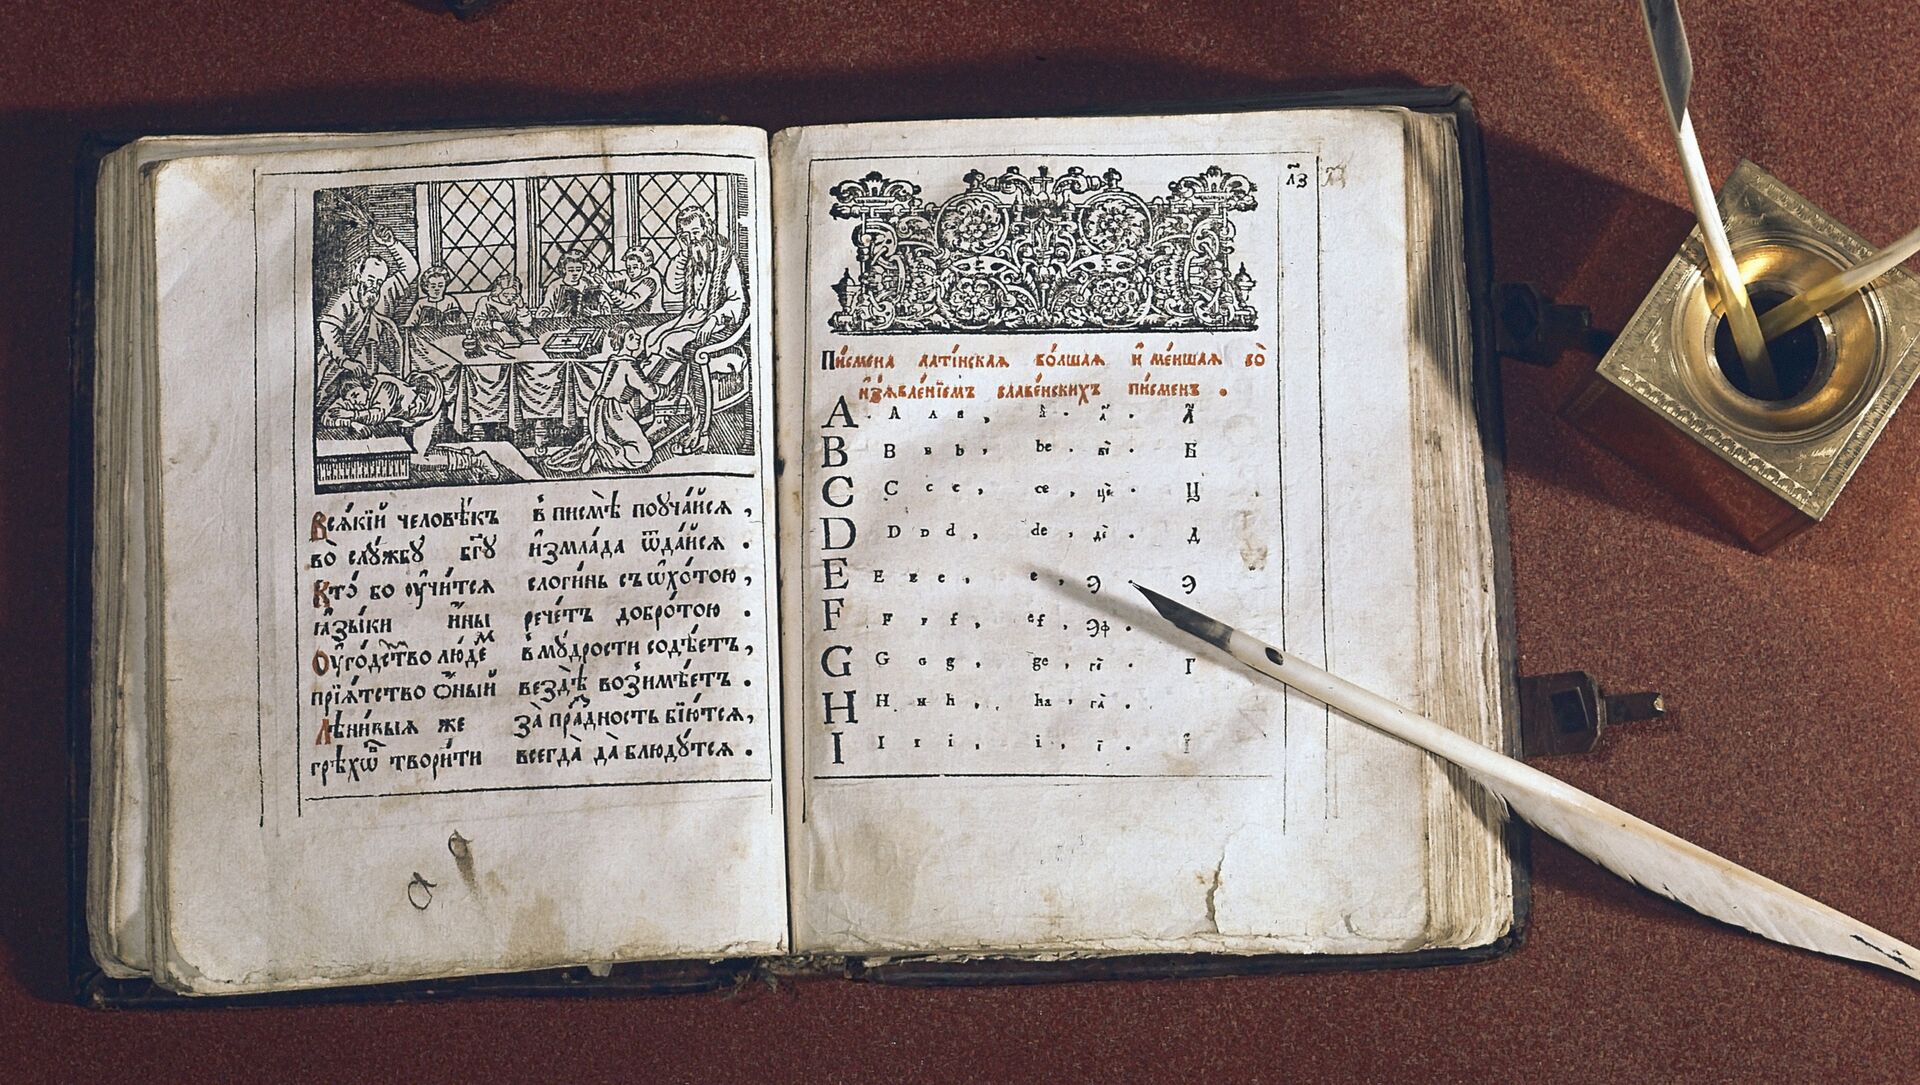 Всѧ́кїй человѣ́къ в̾ писмѣ̀ поуча́йсѧ ,
во̀ слꙋ́жбꙋ бг҃ꙋ и҆змла́да ѿда́йсѧ .
Кто́ бо ᲂу҆чи́тсѧ слоги́нь съ ѡ҆хо́тою ,
ꙗ҆зы́ки и҆́ны рече́тъ добро́тою .
Оу҆го́дство люде́м в̾ мꙋ́дрости содѣ́етъ ,
прїѧ́тство ѻ҆́ный вездѣ̀ возимѣ́етъ .
Лѣни́выѧ же за̀ пра́дность бїю́тсѧ ,
грѣхѡ́в твори́ти всегда̀ да̀ блюдꙋ́тсѧ .
л҃з
Пи́смена лати́нскаѧ бо́лшаѧ и҆ ме́ншаѧ со̀
и҆з̾ѧвле́нїемъ славе́нскихъ пи́сменъ .
A A a ,
B B b , be . Б
C C c , ce , Ц
D D d , de , Д
E E e , e , Э . Э
F F f , ef , Эф .
G G g , ge , Г
H H h , ha ,
I I i , i , ї .